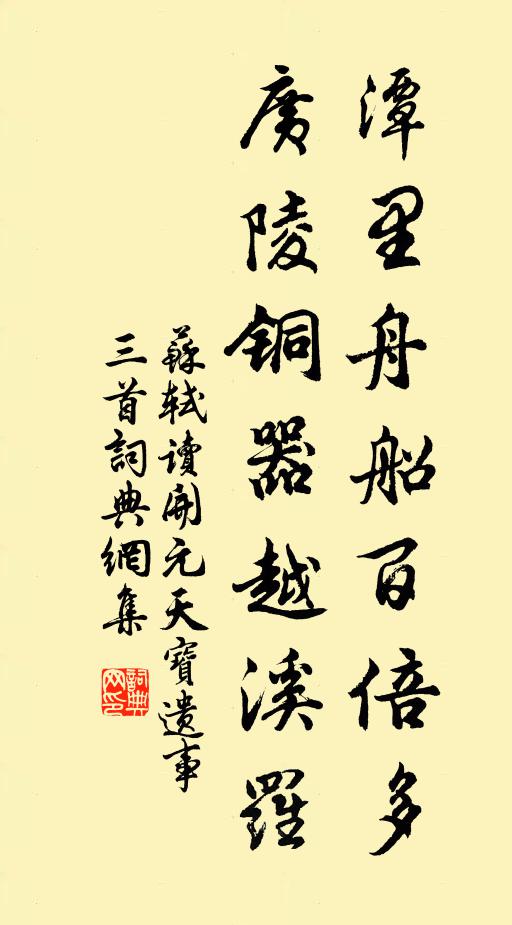 潭里舟船百倍多
廣陵銅器越溪羅
蘇軾讀開元天寶遺事
三首詞典網集
詞典
网印